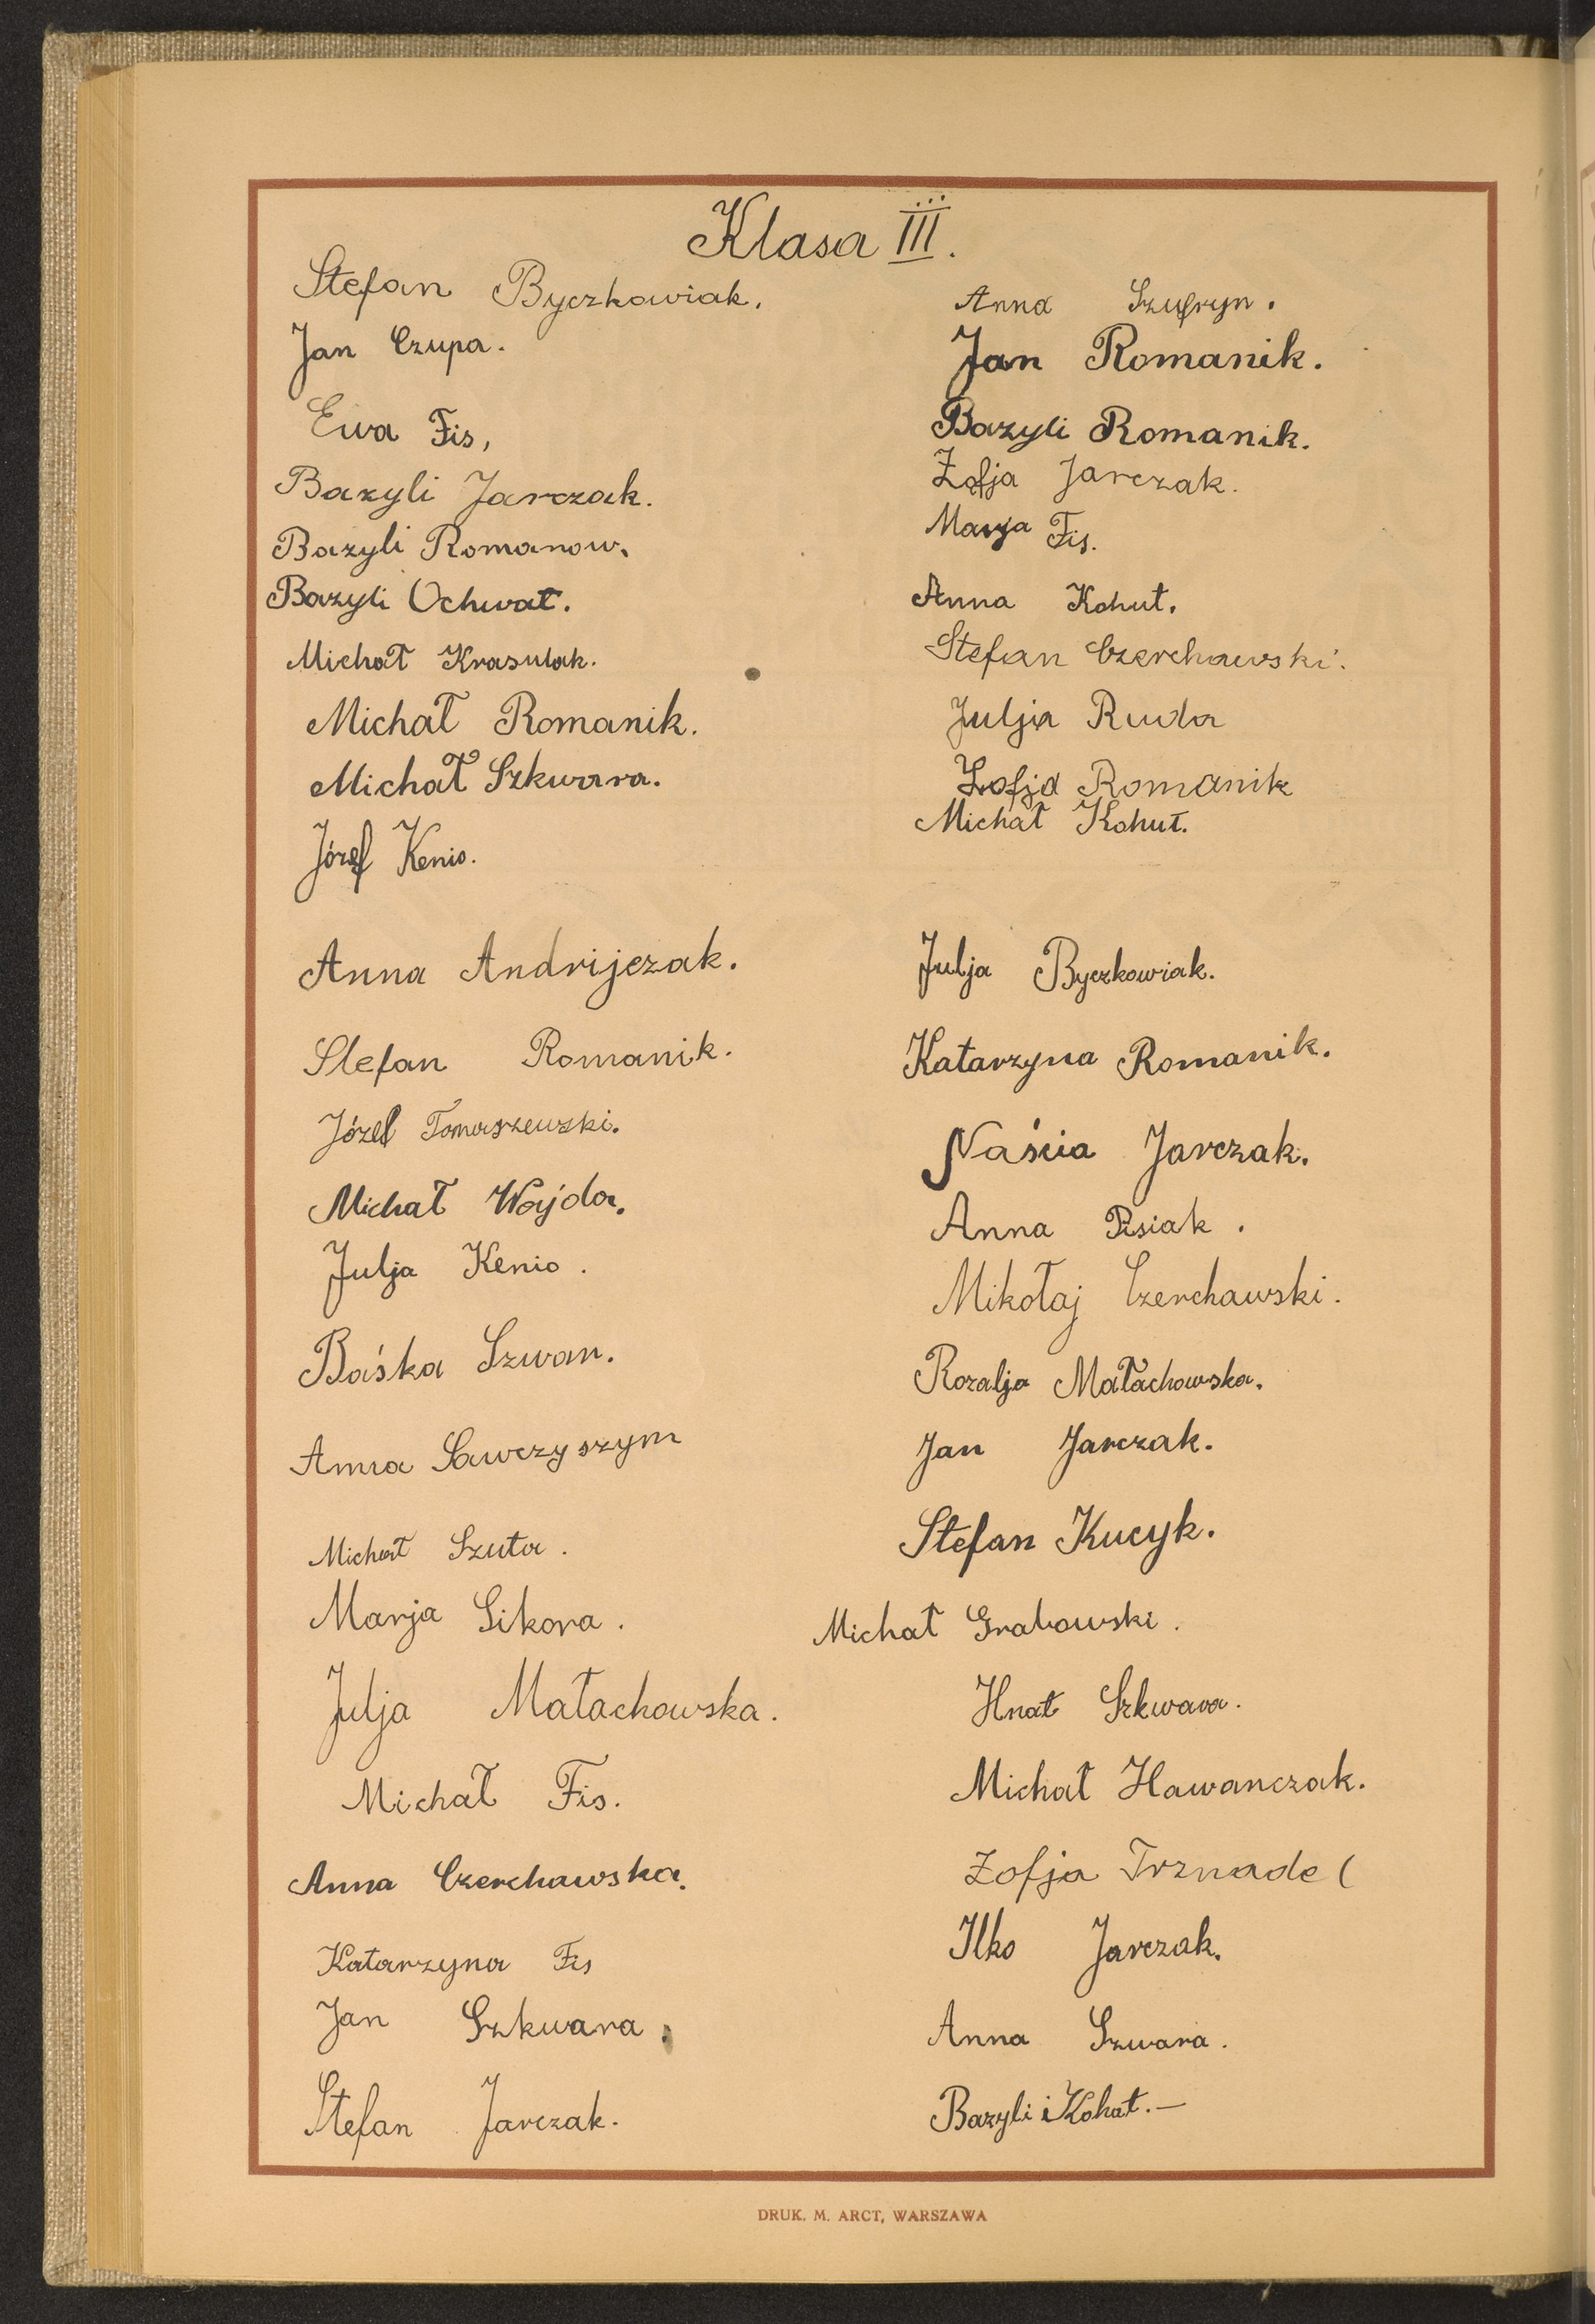 Klasa III.
Stefan Byczkowiak.
Jan Czupa.
Ewa Fis,
Bazyli Jarczak.
Bazyli Romanow.
Bazyli Ochwat.
Michał Krasulak.
Michał Romanik.
Michał Szkwara.
Józef Kenio.
Anna Andrijczak.
Stefan Romanik.
Józef Tomaszewski.
Michał Wojda.
Julja Kenio.
Baśka Szwan.
Anna Sawczyszym
Michał Szuta.
Marja Sikora.
Julja Małachowska.
Michał Fis.
Anna Czerchawska.
Katarzyna Fis
Jan Szkwara.
Stefan Jarczak.
Anna
Jan Romanik.
Bazyli Romanik.
Zofja Jarczak.
Marja Fis.
Anna Kohut.
Stefan Czerchawski.
Julja Ruda
Zofja Romanik
Michał Kohut.
Julja Byczkowiak.
Katarzyna Romanik.
Naścia Jarczak.
Anna
Mikołaj Czerchawski.
Rozalja Małachowska.
Jan Jarczak.
Stefan Kucyk.
Michał Grabowski.
Hnat Szkwara.
Michał Hawanczak.
Zofja Trznadel
Ilko Jarczak.
Anna Szwara.
Bazyli i Kohut.—
DRUK. M. ARCT, WARSZAWA